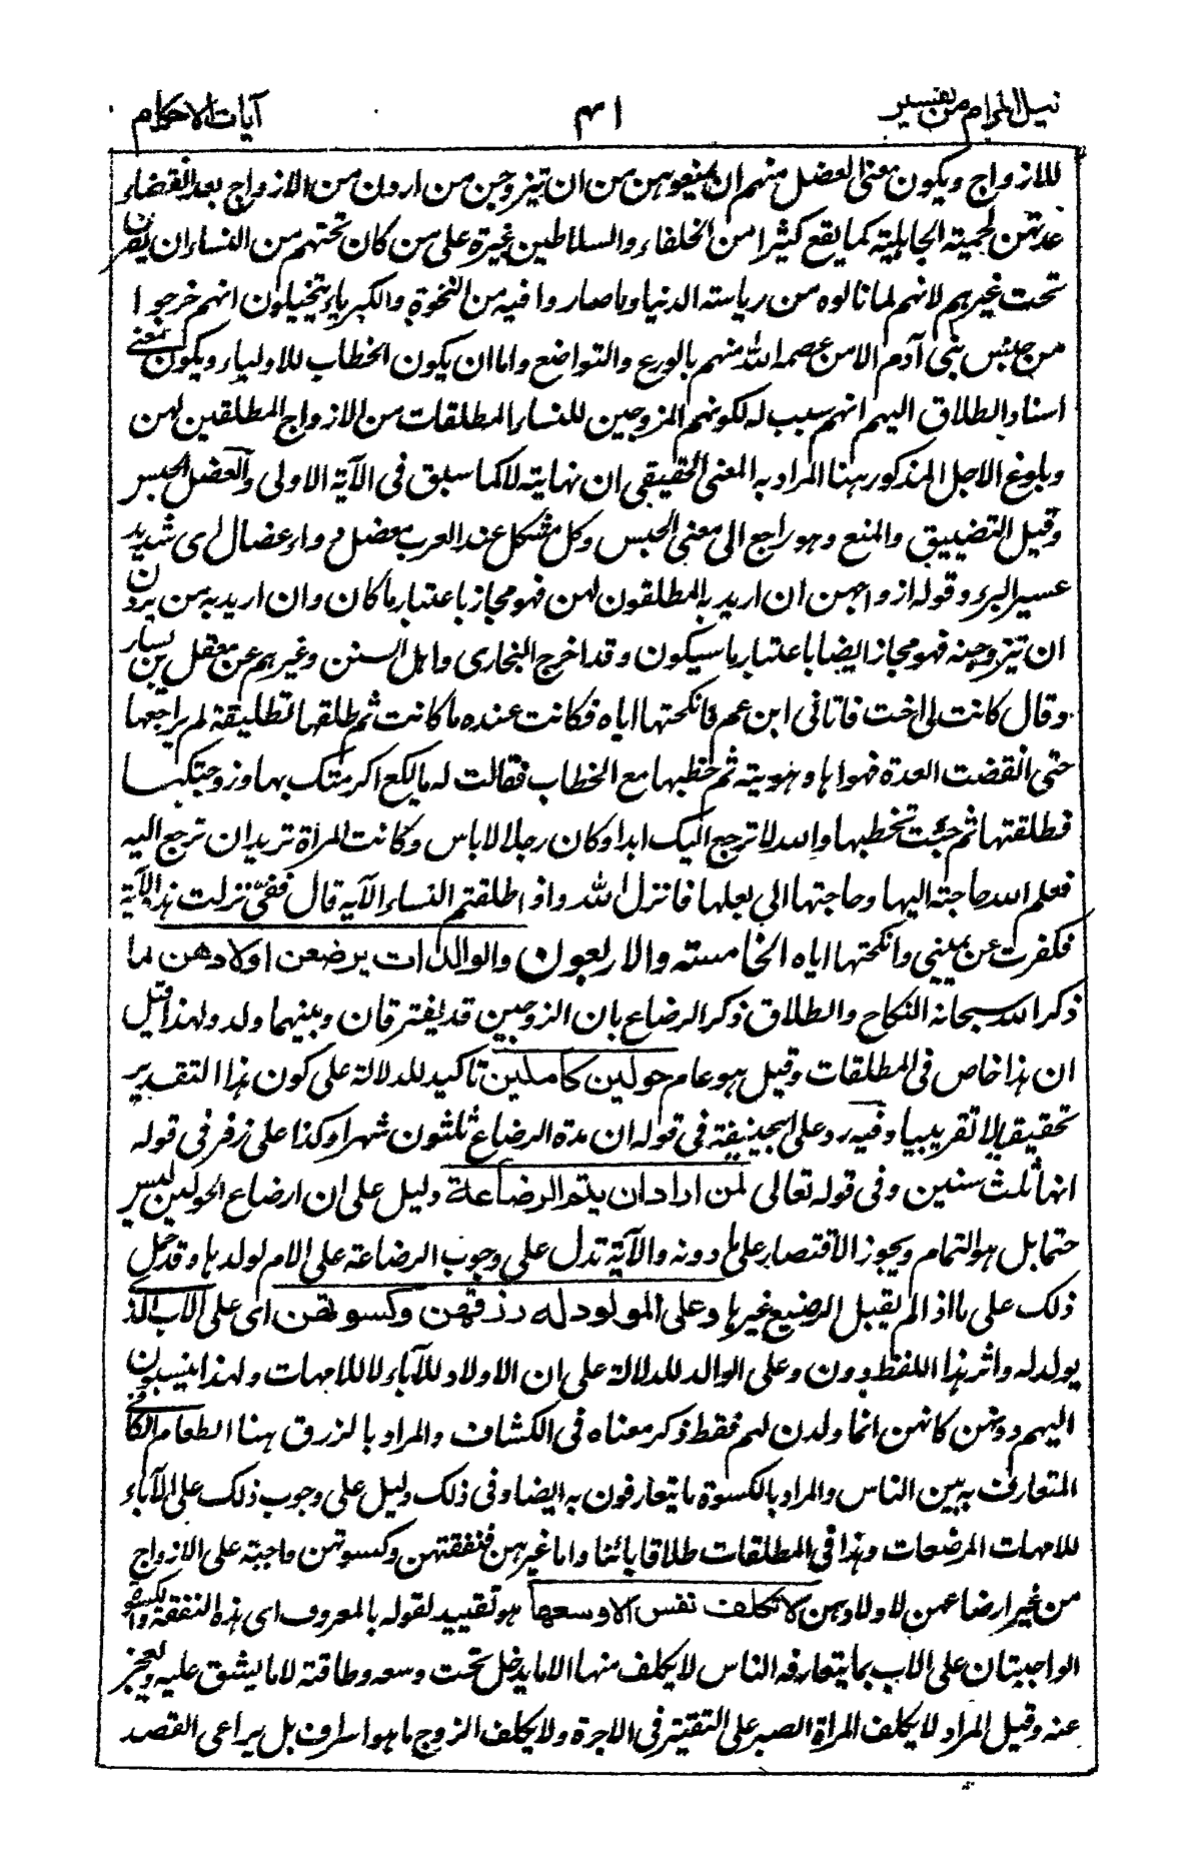 نيل المرام من تفسير ٤١ آيات الاحكام
للازواج ويكون معنى العضل منهم ان يمنعوهن من ان يتزوجن من اردن من الازواج بعد انقضاء
عدتهن لحمية الجاهلية كما يقع كثيرا من الخلفاء والسلاطين غيرة على من كان تحتهم من النساء ان يصرن
تحت غيرهم لانهم لما نالوه من رياسة الدنيا وما صاروا فيه من النخوة والكبرياء يتخيلون انهم خرجوا
من جنس بني آدم الا من عصمه الله منهم بالورع والتواضع واما ان يكون الخطاب للاولياء ويكون معنى
اسناد الطلاق اليهم انهم سبب له لكونهم المزوجين للنساء المطلقات من الازواج المطلقين لهن
وبلوغ الاجل المذكور هنا المراد به المعنى الحقيقي ان نهايته لا كما سبق في الآية الاولى والعضل الحبس
وقيل التضييق والمنع وهو راجع الى معنى الحبس وكل مشكل عند العرب معضل وداء عضال اى شديد
عسير البرء وقوله ازواجهن ان اريد به المطلقون لهن فهو مجاز باعتبار ما كان وان اريد به من يردن
ان يتزوجنه فهو مجاز ايضا باعتبار ما سيكون وقد اخرج البخارى واهل السنن وغيرهم عن معقل بن يسار
وقال كانت لي اخت فاتاني ابن عم فانكحتها اياه فكانت عنده ما كانت ثم طلقها تطليقة لم يراجعها
حتى انقضت العدة فهواها وهويته ثم خطبها مع الخطاب فقالت له يا لكع اكرمتك بها وزوجتكها
فطلقتها ثم جئت تخطبها والله لا ترجع اليك ابدا وكان رجلا لا باس وكانت المرأة تريد ان ترجع اليه
فعلم الله حاجته اليها وحاجتها الى بعلها فانزل الله واذا طلقتم النساء الآية قال ففيّ نزلت هذه الآية
فكفرت عن يميني وانكحتها اياه الخامسة والاربعون والوالدات يرضعن اولادهن لما
ذكر الله سبحانه النكاح والطلاق ذكر الرضاع بان الزوجين قد يفترقان وبينهما ولد ولهذا قيل
ان هذا خاص في المطلقات وقيل هو عام حولين كاملين تاكيد للدلالة على كون هذا التقدير
تحقيقيا لا تقريبيا وفيه رد على ابيحنيفة في قوله ان مدة الرضاع ثلثون شهرا وكذا على زفر في قوله
انها ثلث سنين وفي قوله تعالى لمن اراد ان يتم الرضاعة دليل على ان ارضاع الحولين ليس
حتما بل هو التمام ويجوز الاقتصار على ما دونه والآية تدل على وجوب الرضاعة على الام لولدها وقد حمل
ذلك على ما اذا لم يقبل الرضيع غيرها وعلى المولود له رزقهن وكسوتهن اى على الاب الذى
يولد له واثر هذا اللفظ دون وعلى الوالد للدلالة على ان الاولاد للآباء لا للامهات ولهذا ينسبون
اليهم دونهن كانهن انما ولدن لهم فقط ذكر معناه في الكشاف والمراد بالرزق هنا الطعام الكافى
المتعارف به بين الناس والمراد بالكسوة ما يتعارفون به ايضا وفي ذلك دليل على وجوب ذلك على الآباء
للامهات المرضعات وهذا في المطلقات طلاقا بائنا واما غيرهن فنفقتهن وكسوتهن واجبة على الازواج
من غير ارضاعهن لاولادهن لا تكلف نفس الا وسعها هو تقييد لقوله بالمعروف اى هذه النفقة والكسوة
الواجبتان على الاب بما يتعارفه الناس لا يكلف منها الا ما يدخل تحت وسعه وطاقته لا ما يشق عليه ويعجز
عنه وقيل المراد لا يكلف المرأة الصبر على التقتير في الاجرة ولا يكلف الزوج ما هو اسراف بل يراعى القصد